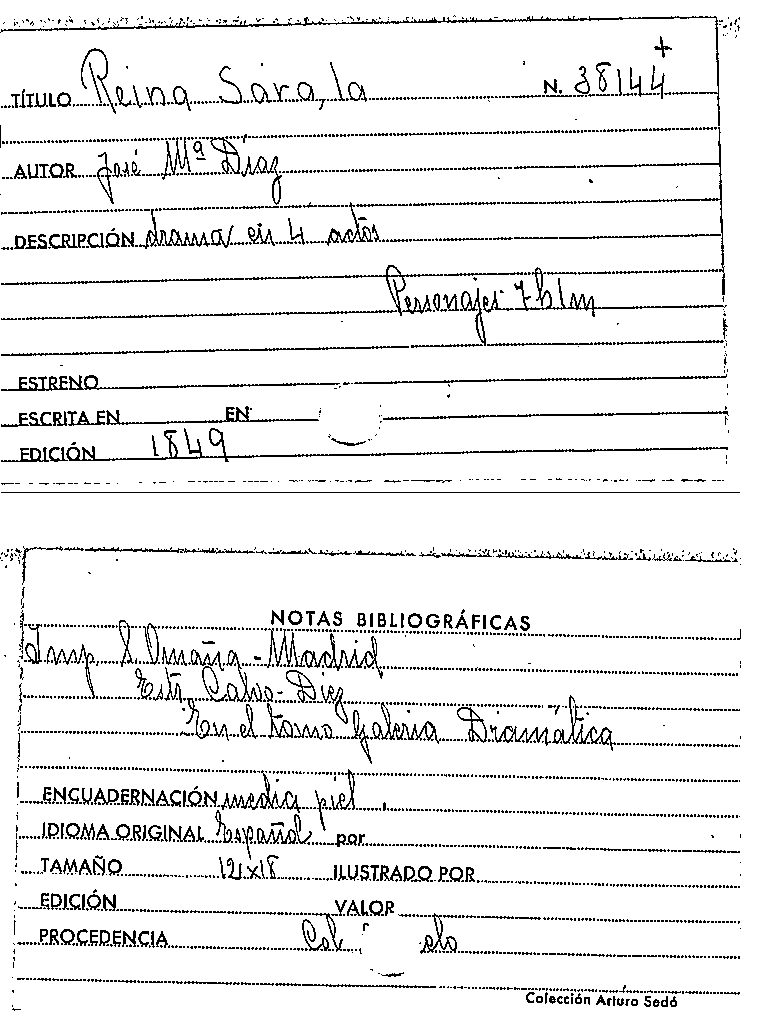 TÍTULO Reina Sara, la N. 38144 +
AUTOR José Mª Díaz
DESCRIPCIÓN drama en 4 actos
Personajes 7 h 1 m
ESTRENO
ESCRITA EN EN
EDICIÓN 1849
NOTAS BIBLIOGRÁFICAS
Imp S. Omaña - Madrid
Edit Calvo - Diez
En el tomo Galeria Dramática
ENCUADERNACIÓN media piel.
IDIOMA ORIGINAL Español por
TAMAÑO 12x18 ILUSTRADO POR
EDICIÓN VALOR
PROCEDENCIA
Colección Arturo Sedó